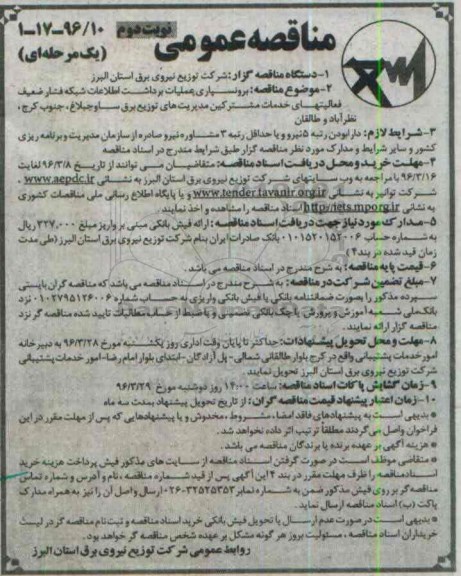 نوبت دوم
مناقصه عمومی
۱-۱۷-۹۶/۱۰
(یک مرحله‌ای)
۱-دستگاه مناقصه گزار: شرکت توزیع نیروی برق استان البرز
۲-موضوع مناقصه: برونسپاری عملیات برداشت اطلاعات شبکه فشار ضعیف
فعالیتهای خدمات مشترکین مدیریت های توزیع برق ساوجبلاغ، جنوب کرج،
نظرآباد و طالقان
۳-شرایط لازم: دارا بودن رتبه ۵ نیرو و یا حداقل رتبه ۳ مشاوره نیرو صادره از سازمان مدیریت و برنامه ریزی
کشور و سایر شرایط و مدارک مورد نظر مناقصه گزار طبق شرایط مندرج در اسناد مناقصه
۴-مهلت خرید و محل دریافت اسناد مناقصه: متقاضیان می توانند از تاریخ ۹۶/۳/۸ لغایت
۹۶/۳/۱۶ با مراجعه به وب سایتهای شرکت توزیع نیروی برق استان البرز به نشانی www.aepdc.ir ،
شرکت توانیر به نشانی www.tender.tavanir.org.ir و یا پایگاه اطلاع رسانی ملی مناقصات کشوری
به نشانی http://iets.mporg.ir اسناد مناقصه را مشاهده و اخذ نمایند
۵-مدارک مورد نیاز جهت دریافت اسناد مناقصه: ارائه فیش بانکی مبنی بر واریز مبلغ ۳۲۷,۰۰۰ ریال
به شماره حساب ۰۱۰۱۵۲۰۱۵۲۰۰۶ بانک صادرات ایران بنام شرکت توزیع نیروی برق استان البرز (طی مدت
زمان قید شده در بند ۴)
۶-قیمت پایه مناقصه: به شرح مندرج در اسناد مناقصه می باشد.
۷-مبلغ تضمین شرکت در مناقصه: به شرح مندرج در اسناد مناقصه می باشد که مناقصه گران بایستی
سپرده مذکور را بصورت ضمانتنامه بانکی یا فیش بانکی واریزی به حساب شماره ۰۱۰۲۷۹۵۱۲۶۰۰۶ نزد
بانک ملی شعبه آموزش و پرورش یا چک بانکی تضمینی و یا ضبط از حساب مطالبات تایید شده مناقصه گر نزد
مناقصه گزار ارائه نمایند.
۸-مهلت و محل تحویل پیشنهادات: حداکثر تا پایان وقت اداری روز یکشنبه مورخ ۹۶/۳/۲۸ به دبیرخانه
امور خدمات پشتیبانی واقع در کرج بلوار طالقانی شمالی- پل آزادگان- ابتدای بلوار امام رضا- امور خدمات پشتیبانی
شرکت توزیع نیروی برق استان البرز تحویل نمایند.
۹-زمان گشایش پاکات اسناد مناقصه: ساعت ۱۴:۰۰ روز دوشنبه مورخ ۹۶/۳/۲۹
۱۰-زمان اعتبار پیشنهاد قیمت مناقصه گران: از تاریخ تحویل پیشنهاد بمدت سه ماه
* بدیهی است به پیشنهادهای فاقد امضاء، مشروط، مخدوش و یا پیشنهادهایی که پس از مهلت مقرر در این
فراخوان واصل می گردند مطلقاً ترتیب اثر داده نخواهد شد.
* هزینه آگهی بر عهده برنده یا برندگان مناقصه می باشد.
* متقاضی موظف است در صورت گرفتن اسناد مناقصه از سایت های مذکور فیش پرداخت هزینه خرید
اسناد مناقصه را ظرف مهلت مقرر در بند ۴ این آگهی پس از قید شماره مناقصه، نام و آدرس و شماره تماس
مناقصه گر بر روی فیش مذکور ضمن به شماره نمابر ۳۲۵۲۵۳۵۳-۰۲۶ ارسال و اصل آن را نیز به همراه مدارک
پاکت (ب) اسناد مناقصه ارسال نماید.
* بدیهی است در صورت عدم ارسال یا تحویل فیش بانکی خرید اسناد مناقصه و ثبت نام مناقصه گر در لیست
خریداران اسناد مناقصه، مسئولیت بروز هر گونه مشکل بر عهده شخص مناقصه گر خواهد بود.
روابط عمومی شرکت توزیع نیروی برق استان البرز